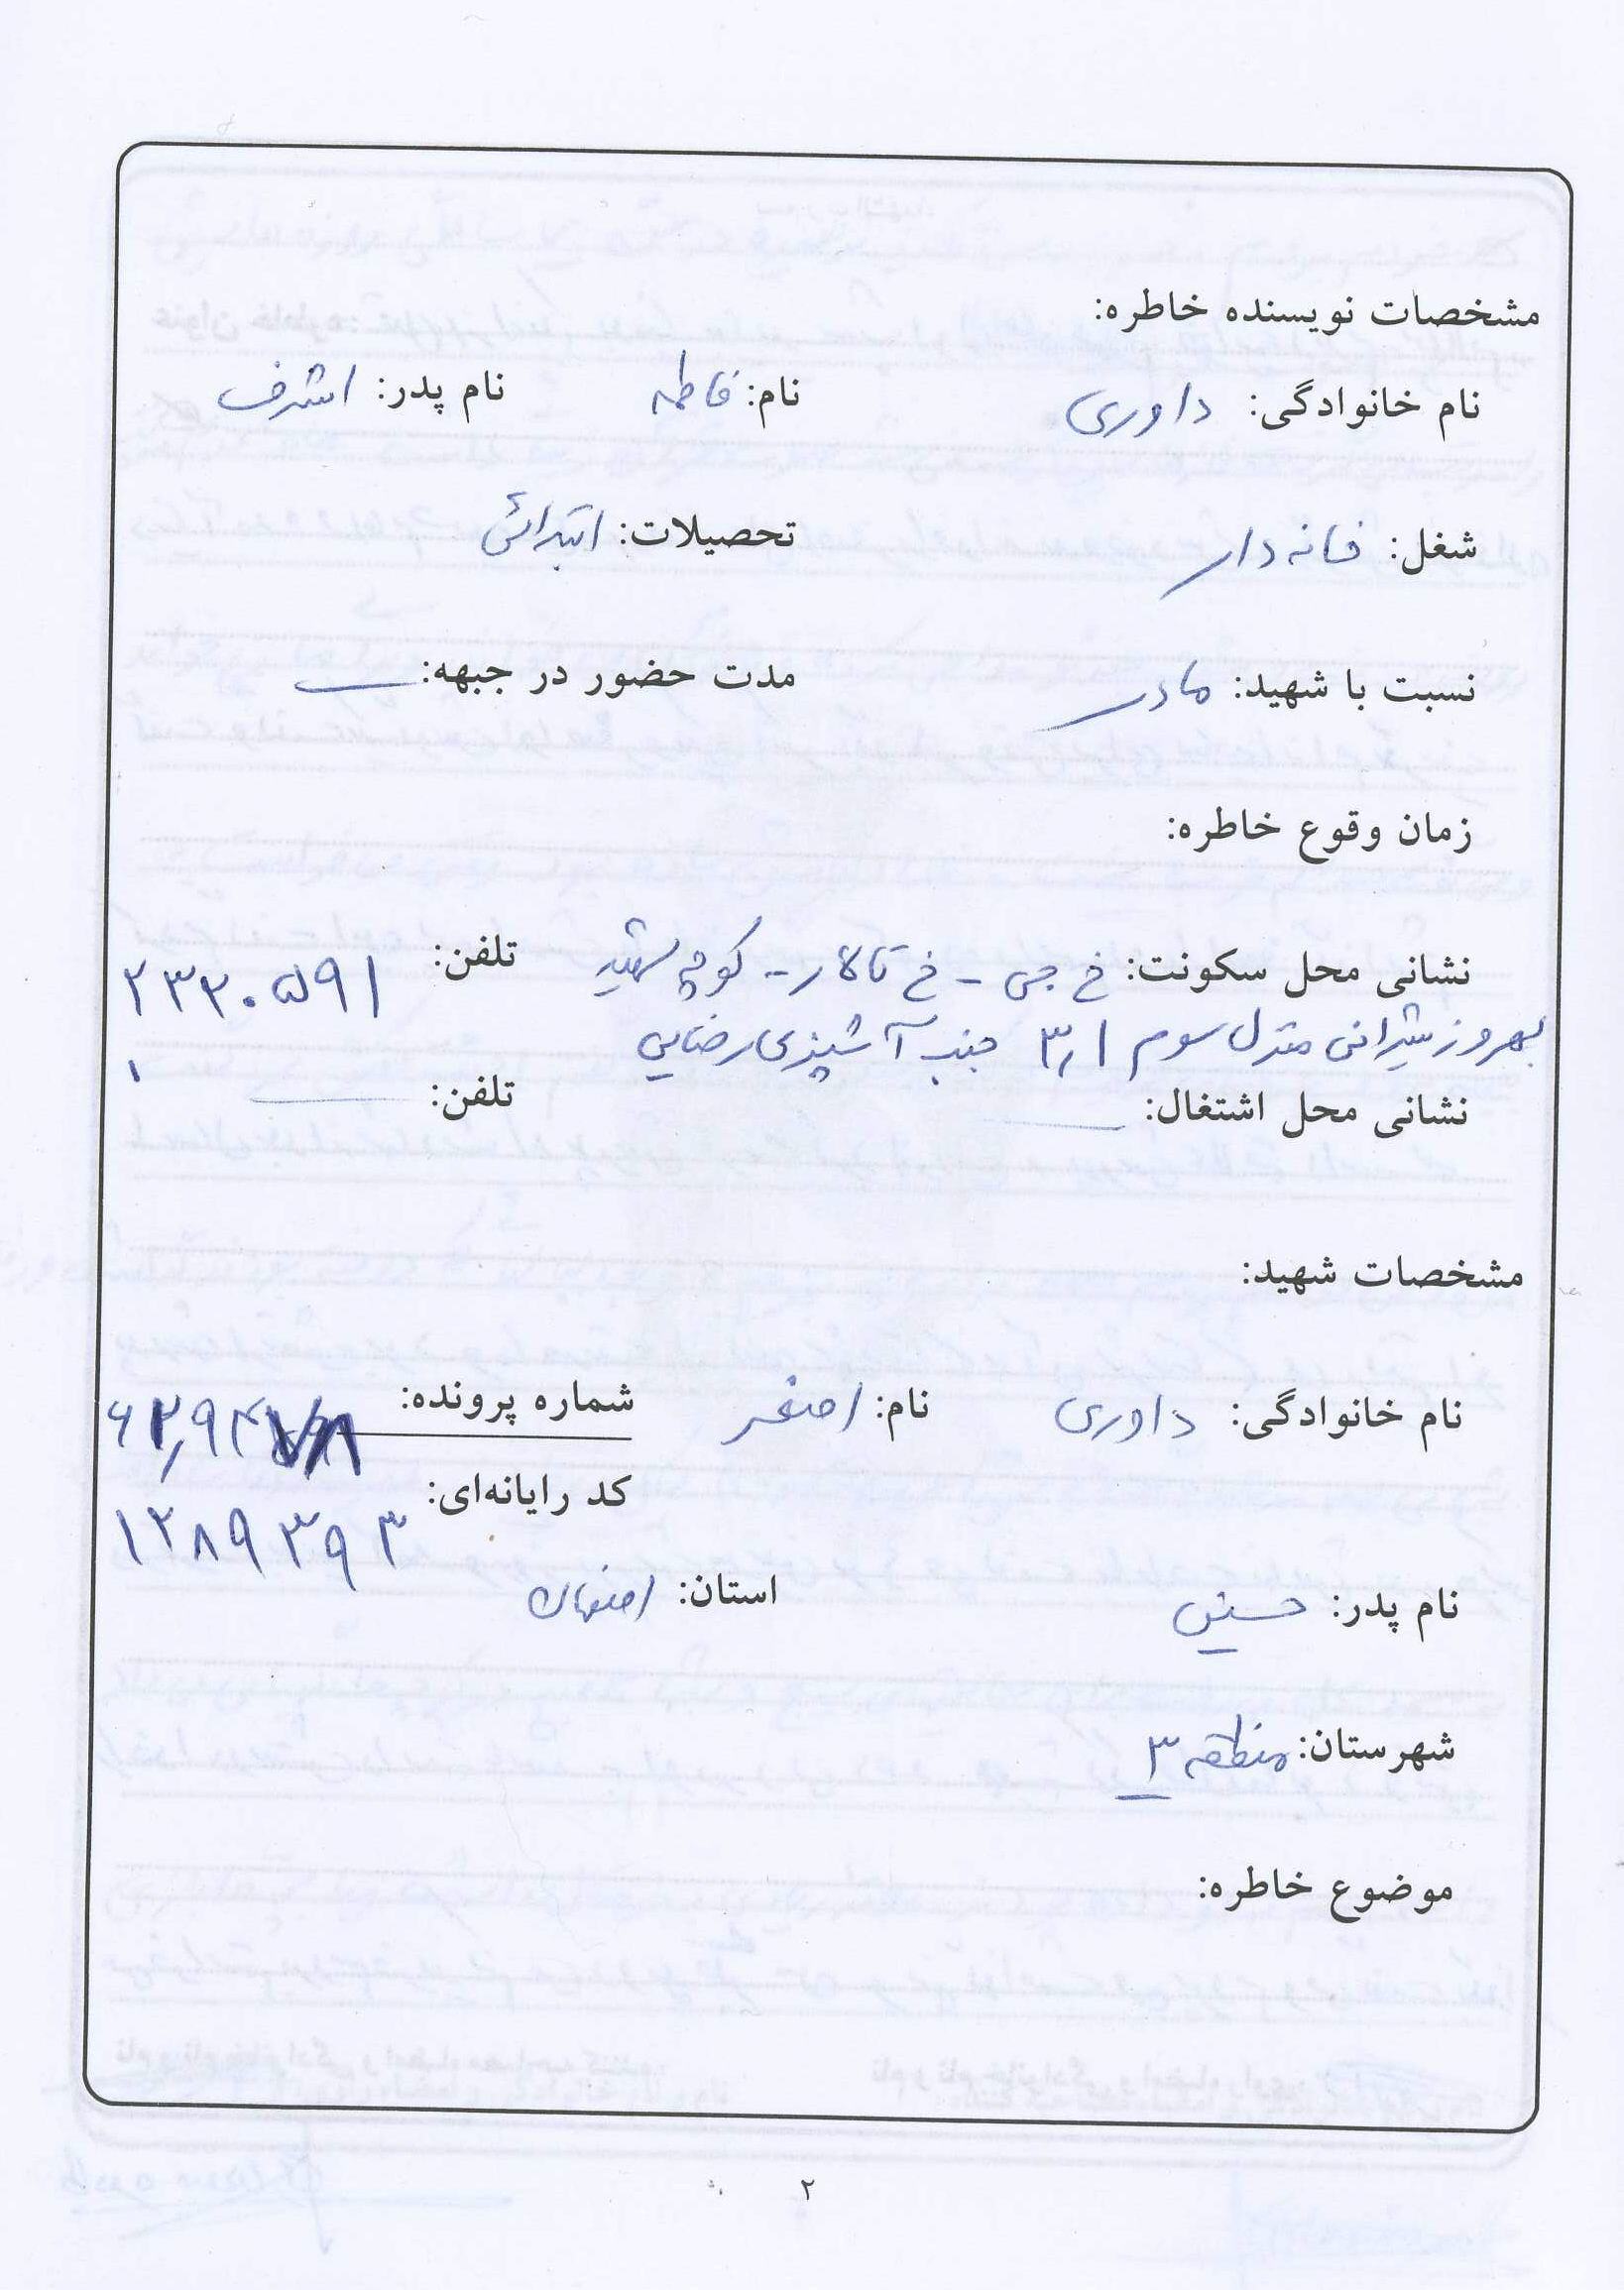 مشخصات نویسنده خاطره:
نام خانوادگی: داوری نام: فاطمه نام پدر: اشرف
شغل: خانه دار تحصیلات: ابتدائی
نسبت با شهید: مادر مدت حضور در جبهه:
زمان وقوع خاطره:
نشانی محل سکونت: خ جی - خ تالار - کوچه شهید تلفن: ۲۳۳۰۵۹۱
بهروز شیرانی منزل سوم جنب آشپزی رضایی
نشانی محل اشتغال: تلفن:
مشخصات شهید:
نام خانوادگی: داوری نام: اصغر شماره پرونده:
کد رایانه‌ای: ۱۲۸۹۳۹۳
نام پدر: حسین استان: اصفهان
شهرستان: منطقه ۳
موضوع خاطره:
۲